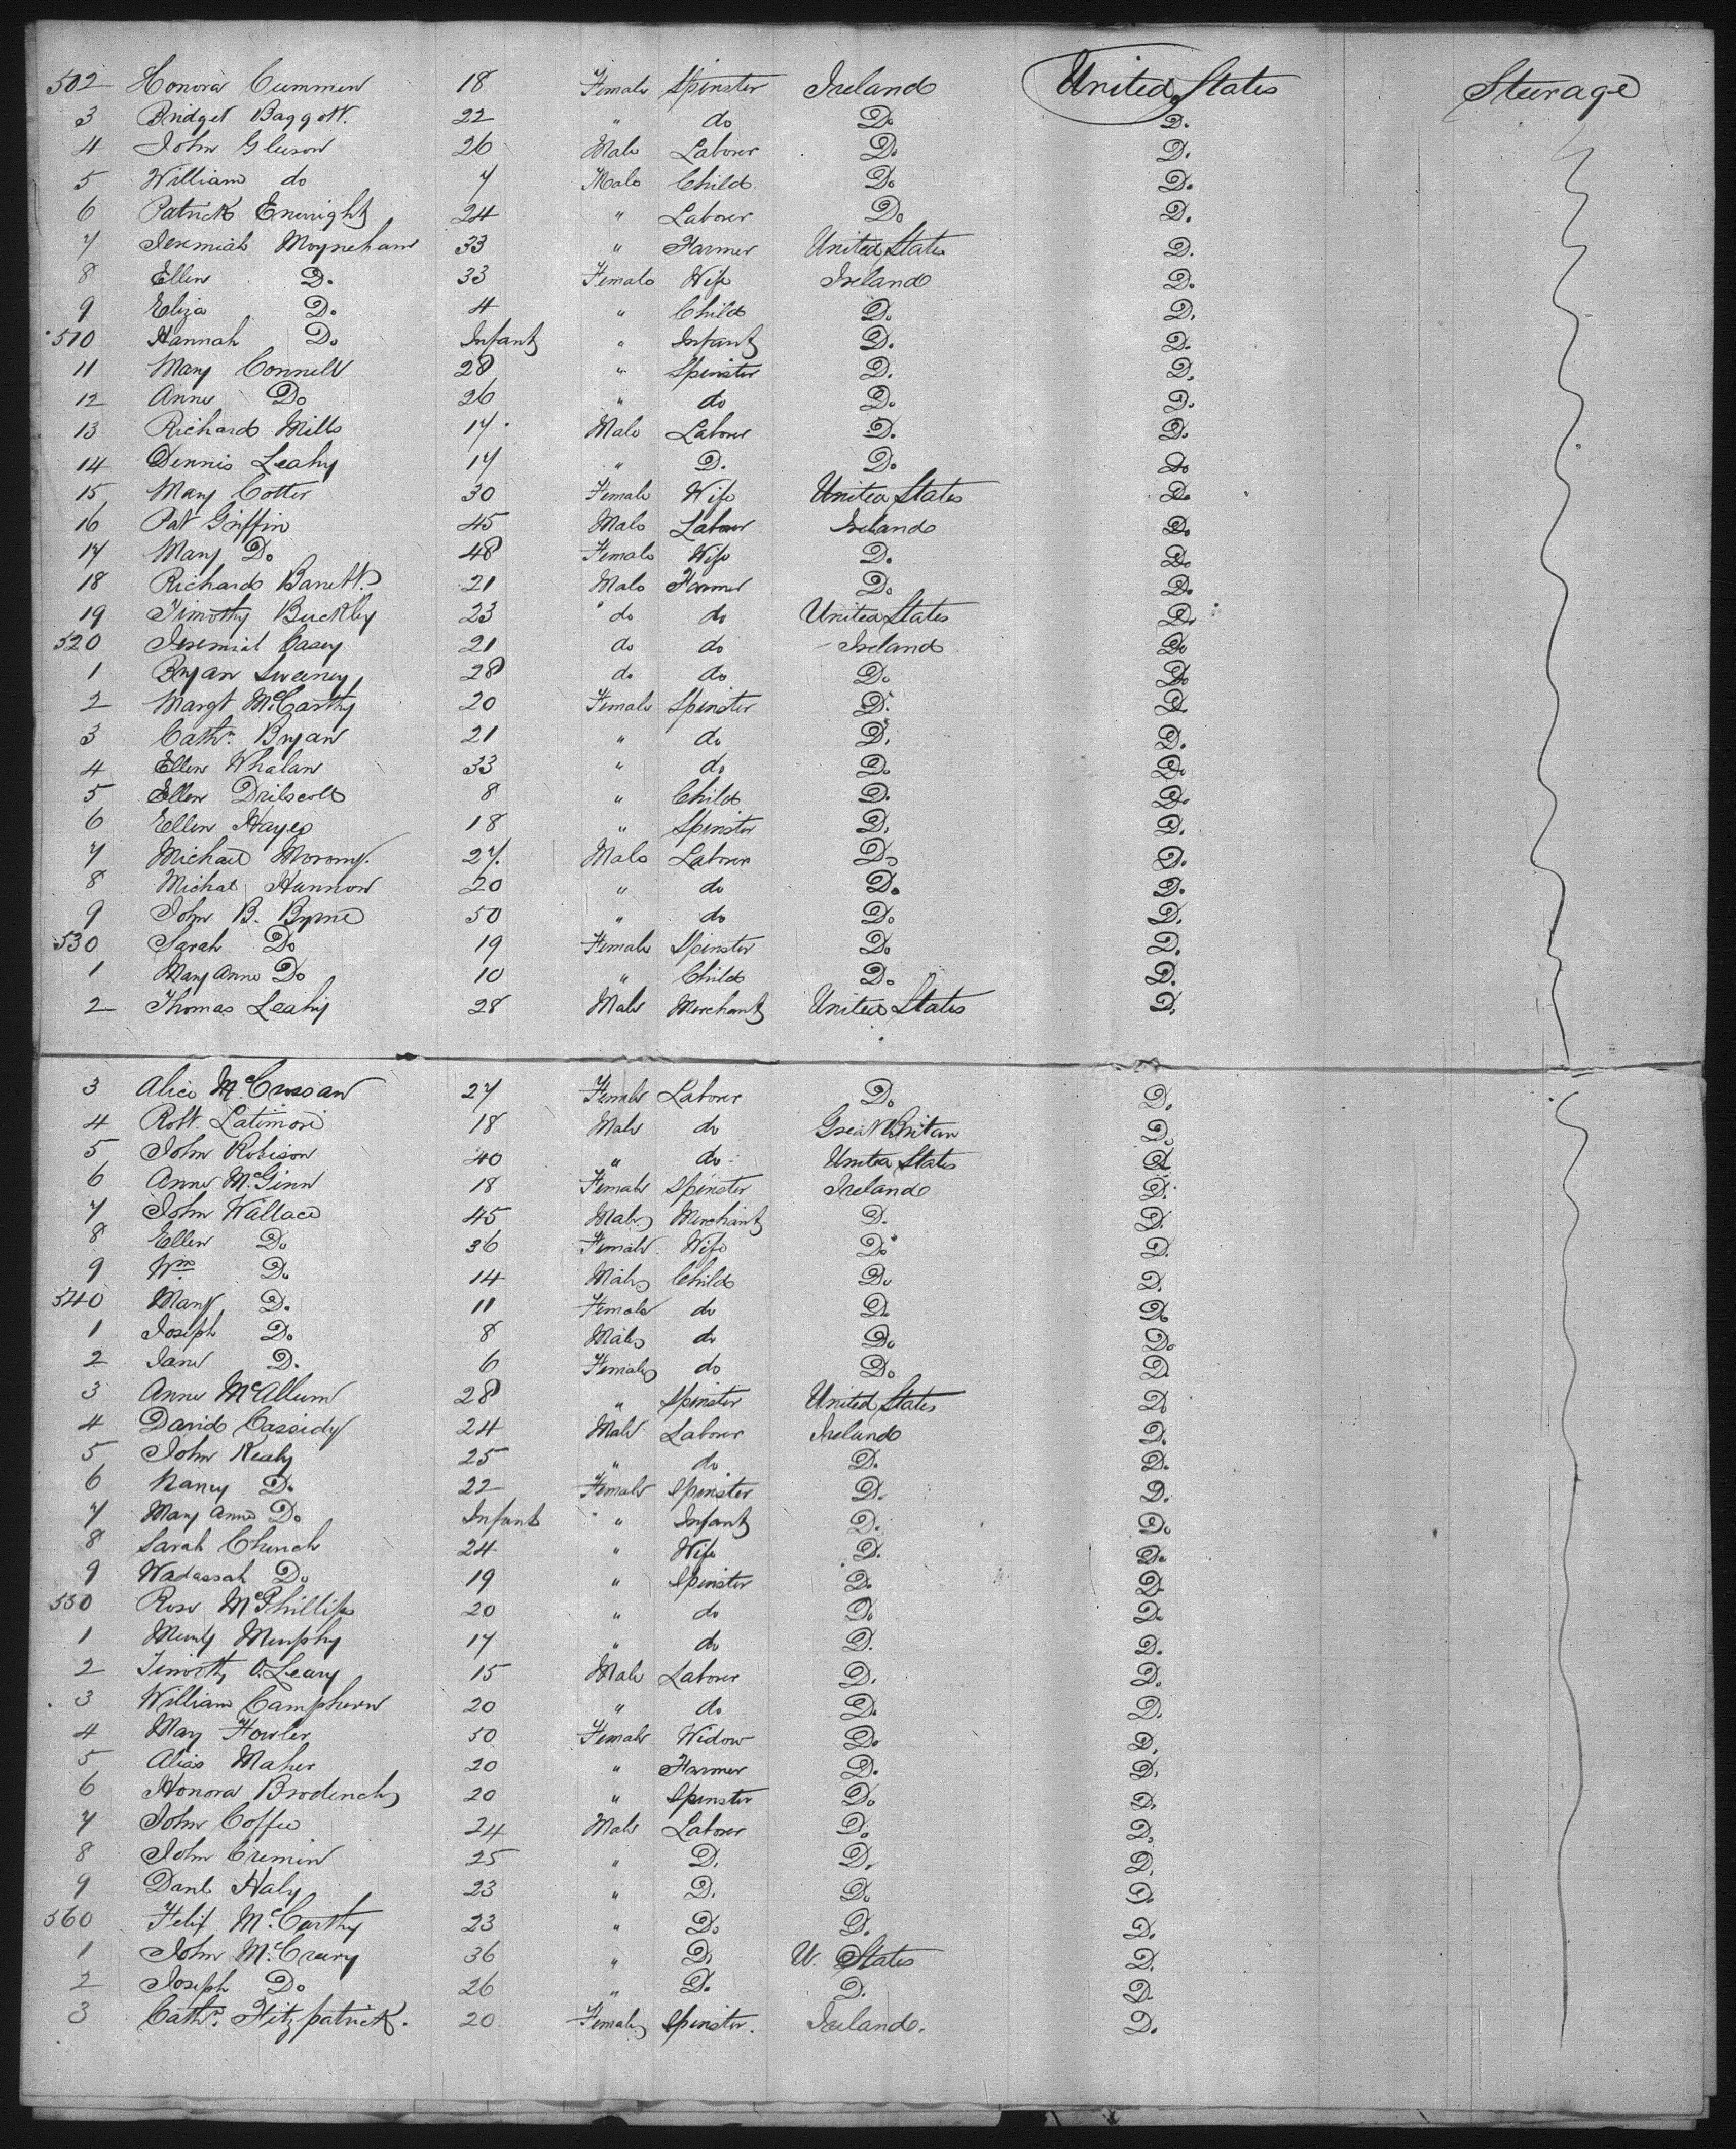 502 Honora Cummen 18 Female Spinster Ireland United States Steerage
3 Bridget Baggott. 22 " do Do D.
4 John Gleeson 26 Male Laborer Do D.
5 William do 7 Male Child Do Do
6 Patrick Enwright 24 " Laborer Do D.
7 Jeremiah Moynehan 33 " Farmer United States D.
8 Ellen D. 33 Female Wife Ireland Do
9 Eliza Do 4 " Child D. D.
510 Hannah Do Infant " Infant D. D.
11 Mary Connell 28 " Spinster D. D.
12 Anne Do 26 " do Do Do
13 Richard Mills 17 Male Laborer D. Do
14 Dennis Leahy 17 " D. Do Do
15 Mary Cotter 30 Female Wife United States Do
16 Pat Griffin 45 Male Laborer Ireland Do
17 Mary Do 48 Female Wife D. Do
18 Richard Barrett 21 Male Farmer Do Do
19 Timothy Buckley 23 do do United States Do
520 Jeremiah Casey 21 do do Ireland Do
1 Bryan Sweeney 28 do do Do Do
2 Margt McCarthy 20 Female Spinster D. D.
3 Cathn. Bryan 21 " do D. D.
4 Ellen Whalan 33 " do Do Do
5 Ellen Driscoll 8 " Child D. Do
6 Ellen Hayes 18 " Spinster D. D.
7 Michael Morony. 27. Male Laborer Do D.
8 Michal Hannon 20 " do D. D.
9 John B. Byrne 50 " do Do D.
530 Sarah Do 19 Female Spinster Do D.
1 Mary Anne Do 10 " Child Do D.
2 Thomas Leahy 28 Male Merchant United States D.
3 Alice McCrossan 27 Female Laborer Do D.
4 Robt. Latimore 18 Male do Great Britan D.
5 John Robison 40 " do United States D.
6 Anne McGinn 18 Female Spinster Ireland D.
7 John Wallace 45 Male Merchant D. D.
8 Ellen Do 36 Female Wife Do D.
9 Wm Do 14 Male Child Do D.
540 Mary D. 11 Female do D. Do
1 Joseph Do 8 Male do Do Do
2 Jane D. 6 Female do Do D.
3 Anne McAllum 28 " Spinster United States Do
4 David Cassidy 24 Male Laborer Ireland D.
5 John Kealy 25 " do D. D.
6 Nancy D. 22 Female Spinster D. D.
7 Mary Anne Do Infant " Infant D. Do
8 Sarah Church 24 " Wife D. Do
9 Wadassah Do 19 " Spinster D. D.
550 Rose McPhillips 20 " do Do Do
1 Murphy 17 " do D. D.
2 Timothy O.Leary 15 Male Laborer D. D.
3 William 20 " do D. D.
4 Mary Fowler 50 Female Widow Do D.
5 Alias Maher 20 " Farmer D. D.
6 Honora Broderick 20 " Spinster Do D.
7 John Coffee 24 Male Laborer Do D.
8 John Cremin 25 " D. D. D.
9 Danl Haly 23 " D. Do D.
560 Felix McCarthy 23 " Do D. D.
1 John McCreary 36 " D. U. States D.
2 Joseph Do 26 " D. D. D.
3 Cathn. Fitzpatrick. 20 Female Spinster. Ireland. D.